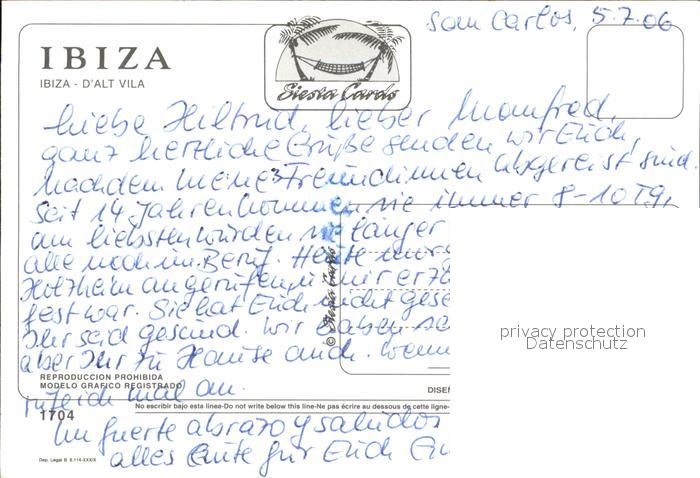 San Carlos, 5.7.06
IBIZA
IBIZA - D'ALT VILA
Siesta Cards
Liebe Hiltrud, lieber Manfred,
ganz herzliche Grüße senden wir Euch,
nachdem meine 3 Freundinnen abgereist sind.
Seit 14 Jahren kommen sie immer 8-10 Tg,
am liebsten würden sie länger
alle noch im Beruf. Heute
Holzheim angerufen, mir
fest war. Sie hat Euch nicht
Ihr seid gesund. Wir haben
aber Ihr zu Hause auch. Wenn
rufe ich mal an.
© Siesta Cards
REPRODUCCION PROHIBIDA
MODELO GRAFICO REGISTRADO
DISEÑ
1704
No escribir bajo esta linea-Do not write below this line-Ne pas écrire au dessous de cette ligne-
Un fuerte abrazo y saludos
alles Gute für Euch
Dep. Legal B. 8.114-XXXIX
privacy protection
Datenschutz